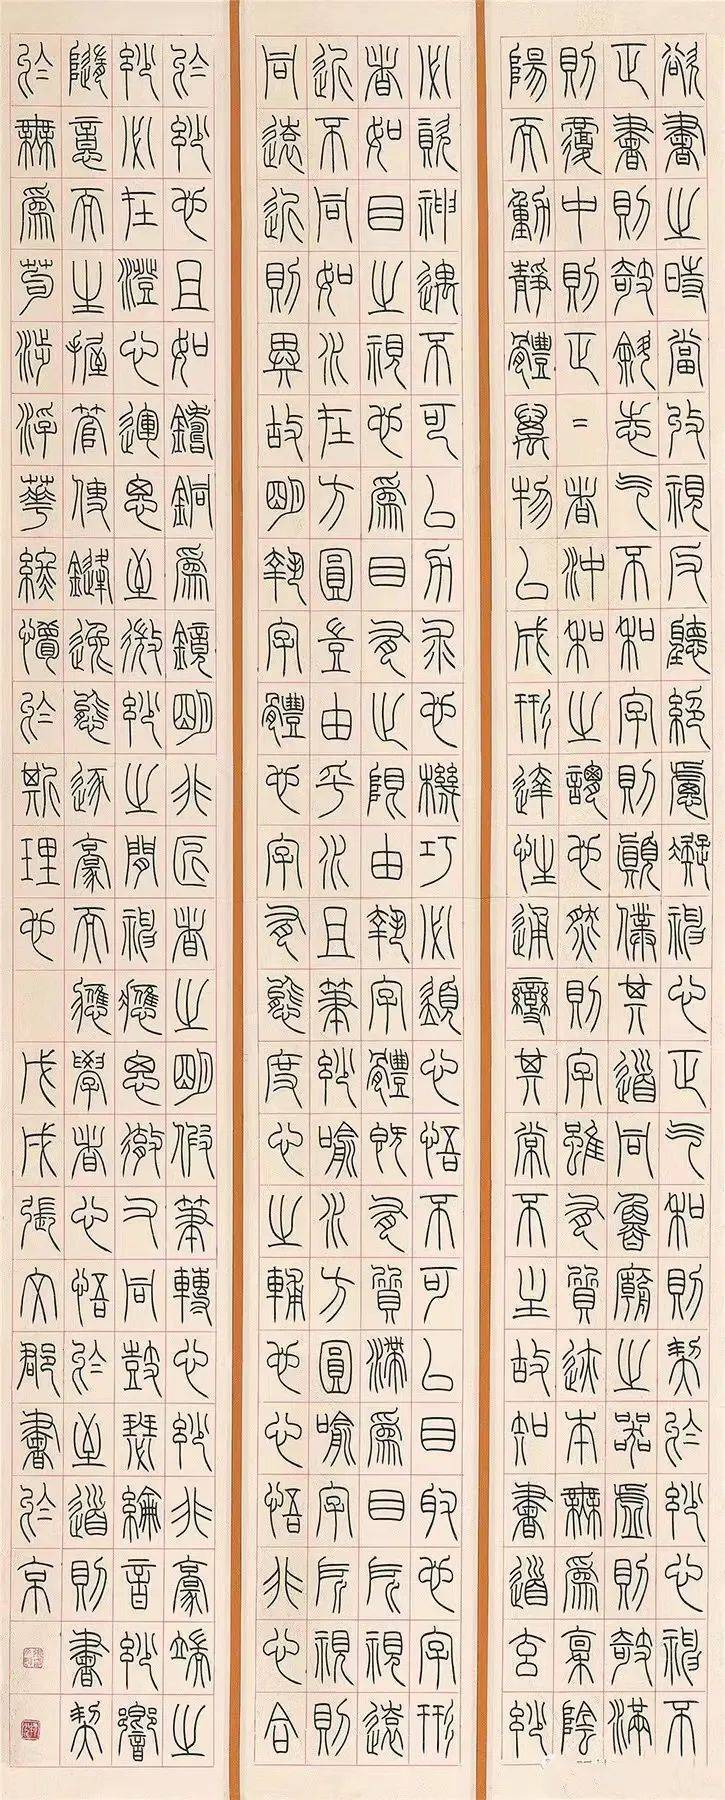 欲書之時當收視反聽絕慮凝神心正气和則契於妙心神不
正書則攲斜志气不和字則顛仆其道同魯廟之器虛則攲滿
則覆中則正=者沖和之謂也然則字雖有質迹本無爲稟陰
陽而動靜體萬物以成形達性通變其常不主故知書道玄妙
必資神遇不可以力求也機巧必須心悟不可以目取也字形
者如目之視也爲目有止限由執字體既有質滯爲目所視遠
近不同如水在方圓豈由乎水且筆妙喻水方圓喻字所視則
同遠近則異故明執字體也字有態度心之輔也心悟非心合
於妙也且如鑄銅爲鏡明非匠者之明假筆轉心妙非豪端之
妙必在澄心運思至微妙之間神應思徹又同鼓瑟綸音妙響
隨意而生握管使鋒逸態逐豪而應學者心悟於至道則書契
於無爲苟涉浮華終懵於斯理也 戊戌張文郡書於京